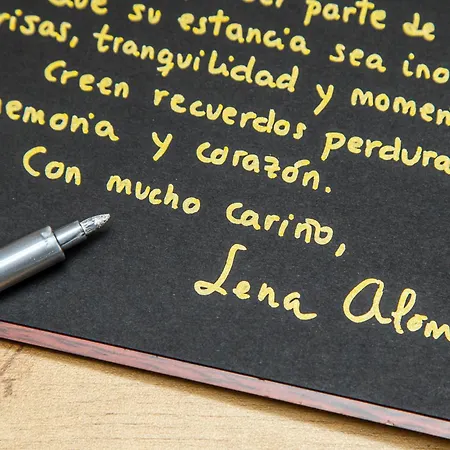 parte de
Que su estancia sea ino
risas, tranquilidad y momen
Creen recuerdos perdura
memoria y corazón.
Con mucho cariño,
Lena Alon